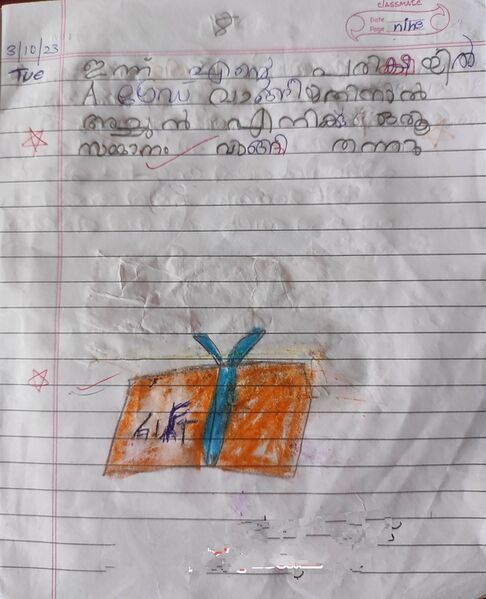 classmate
Date
Page nine
3/10/23
Tue
ഇന്ന് എന്റെ പരിക്ഷയിൽ
A ഗ്രേഡ വാങ്ങിയതിനാൽ
അച്ചൻ എനിക്കു ഒരു
സമ്മാനം വാങ്ങി തന്നു
GIFT